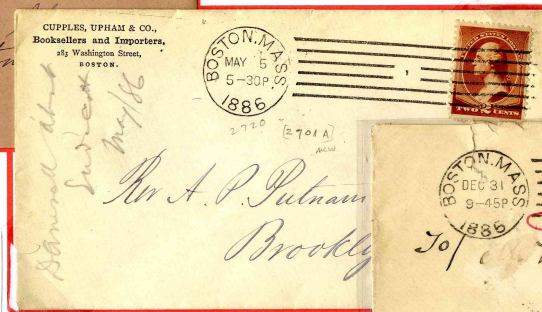 CUPPLES, UPHAM & CO.,
Booksellers and Importers,
283 Washington Street,
BOSTON.
BOSTON. MASS.
MAY 5
5-30P
1886
1
TWO 2 CENTS
2720
[2701A]
new
May/86
Rev A. P. Putnam
Brookly
BOSTON. MASS
DEC 31
9-45P
1886
To/